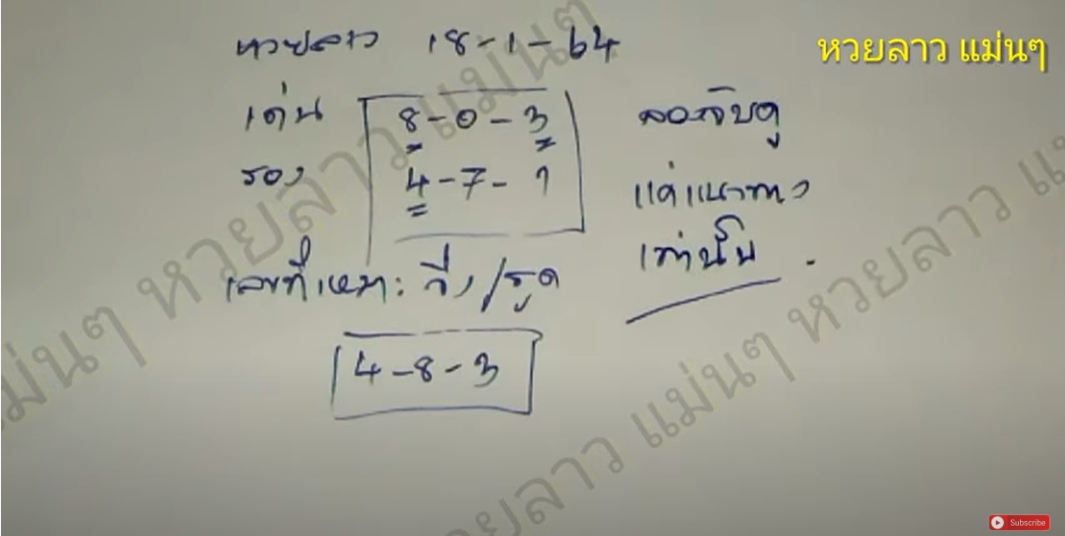 หวยลาว 18-1-64
หวยลาว แม่นๆ
เด่น 8-0-3
รอง 4-7-1
ลองจับดู
แค่แนวทาง
เท่านั้น.
เลขที่เหมาะ: วิ่ง/รูด
4-8-3
หวยลาว แม่นๆ
หวยลาว แม่นๆ
Subscribe